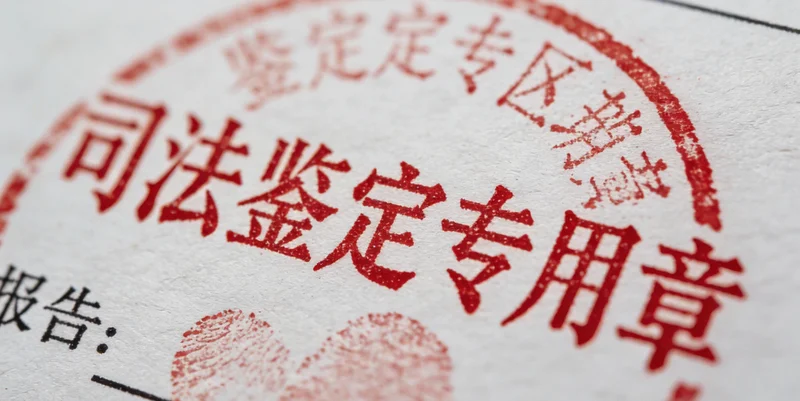 鉴定定专区期章
司法鉴定专用章
报告: